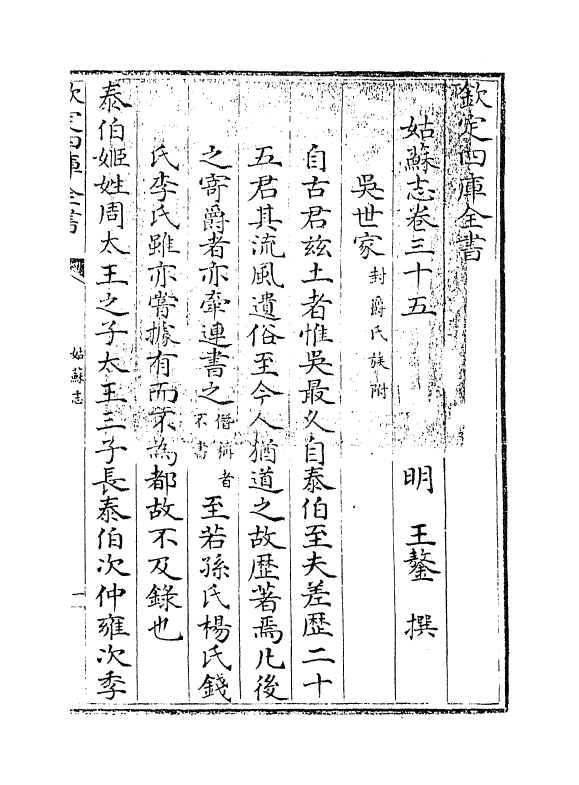 欽定四庫全書
姑蘇志卷三十五
明 王鏊 撰
吳世家封爵氏族附
自古君兹土者惟吳最久自泰伯至夫差歴二十
五君其流風遺俗至今人猶道之故歴著焉凡後
之寄爵者亦牽連書之僭稱者不書至若孫氏楊氏錢
氏李氏雖亦嘗據有而不為都故不及錄也
泰伯姬姓周太王之子太王三子長泰伯次仲雍次季
欽定四庫全書
姑蘇志
一